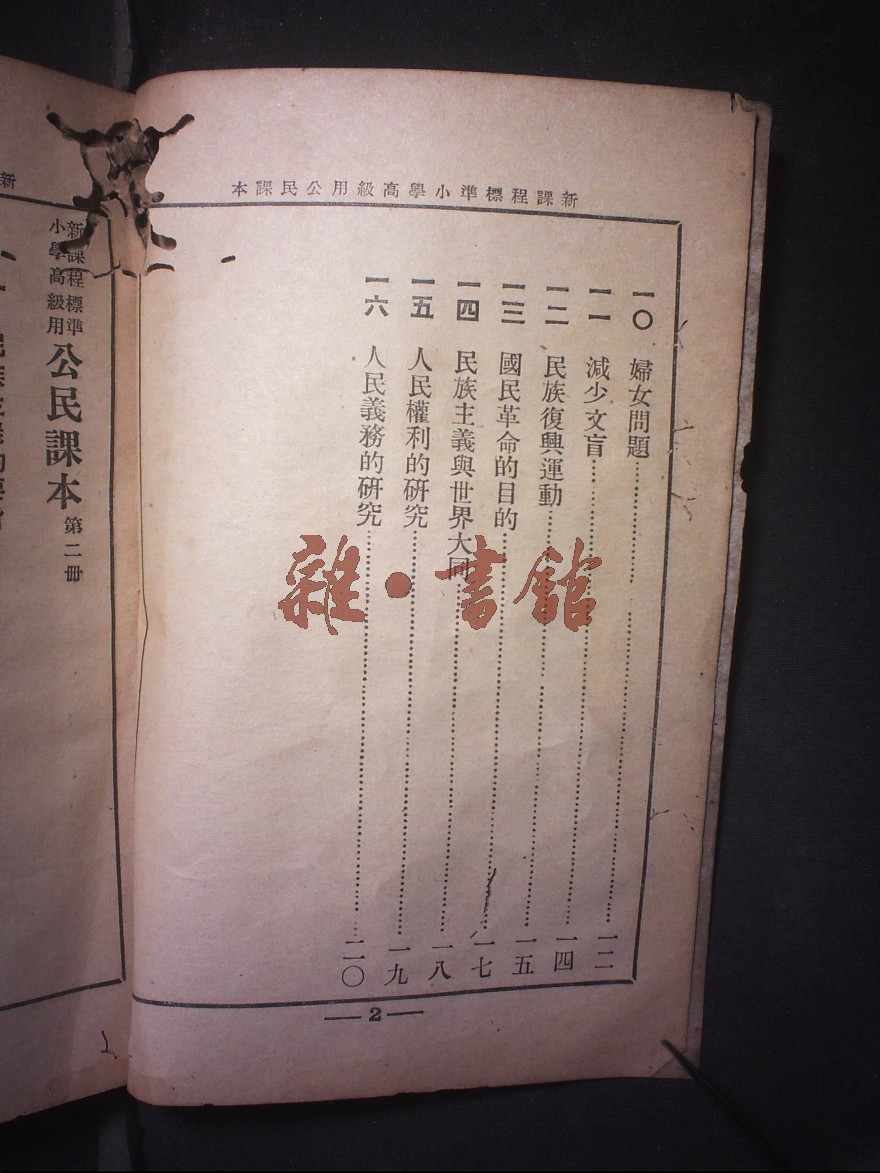 新課程標準小學高級用公民課本
一〇 婦女問題……一二
一一 減少文盲……一四
一二 民族復興運動……一五
一三 國民革命的目的……一七
一四 民族主義與世界大同……一八
一五 人民權利的研究……一九
一六 人民義務的研究……二〇
—2—
雜·書館
新
新課程標準
小學高級用
公民課本 第二冊